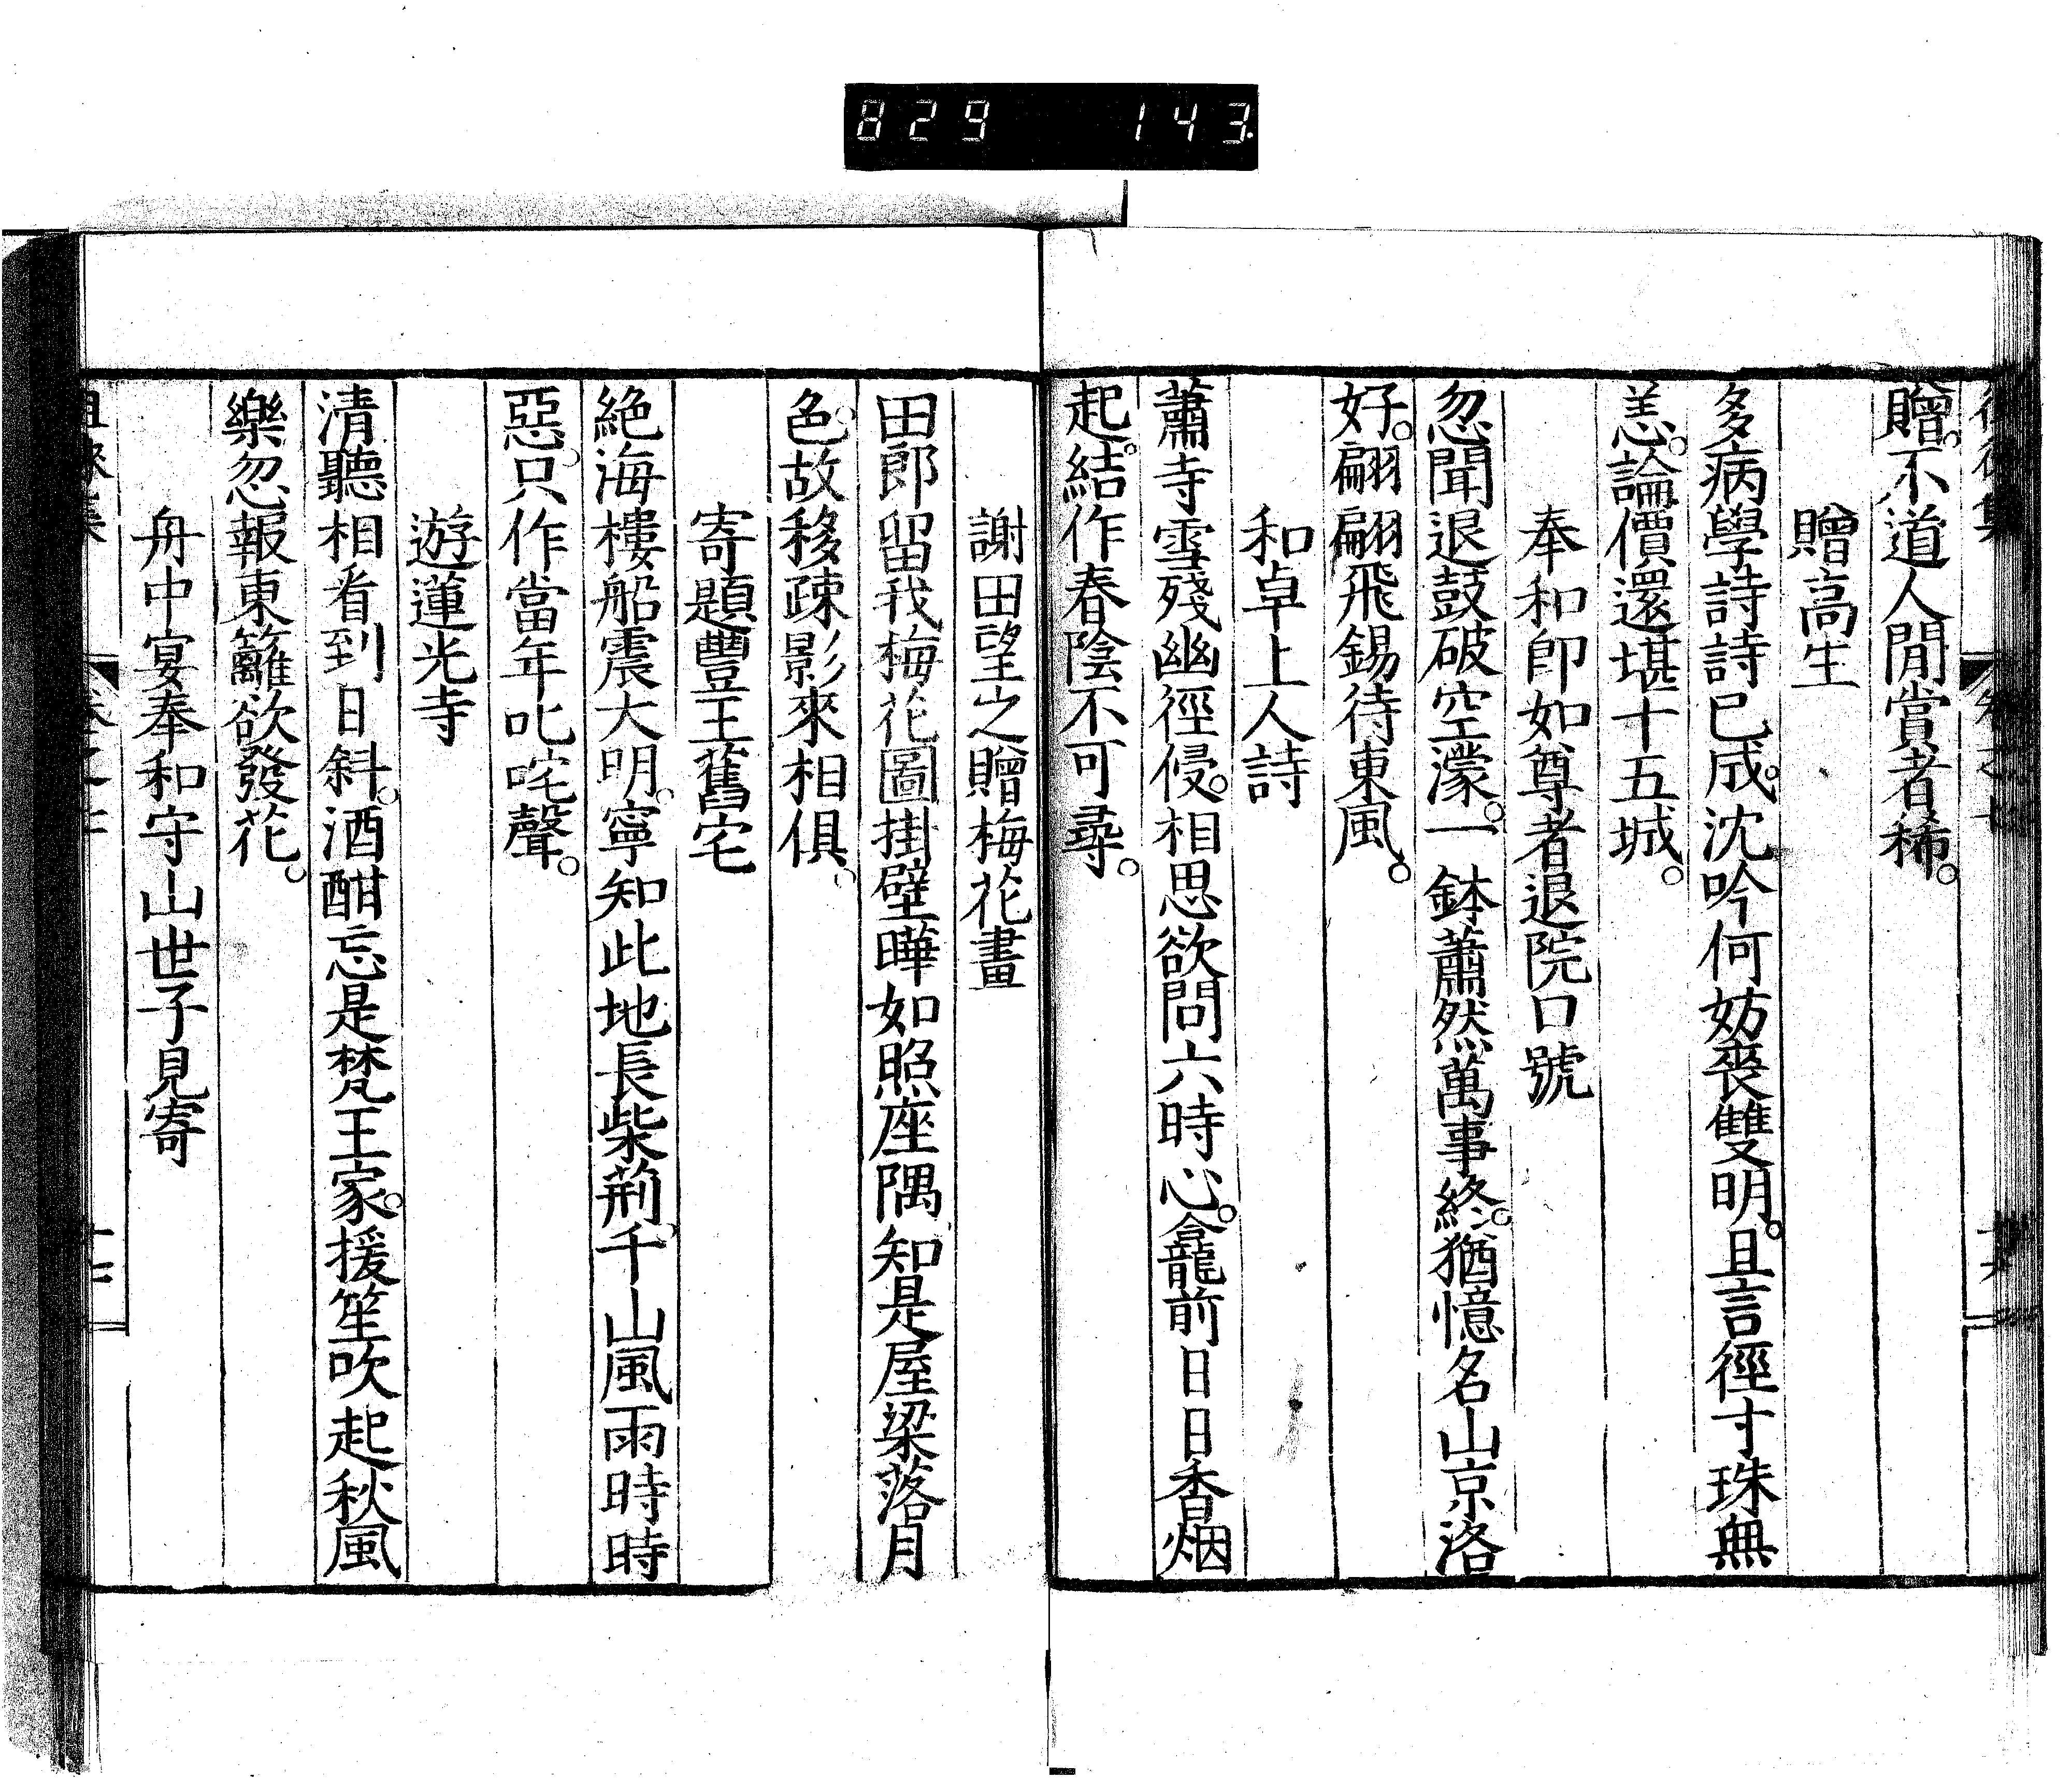 829 143
贈。不道人間賞者稀。
贈高生
多病學詩詩已成。沈吟何妨喪雙明。且言徑寸珠無
恙。論價還堪十五城。
奉和卽如尊者退院口號
忽聞退鼓破空濛。一鉢蕭然萬事終。猶憶名山京洛
好。翩翩飛錫待東風。
和卓上人詩
蕭寺雪殘幽徑侵。相思欲問六時心。龕前日日香烟
起。結作春陰不可尋。
謝田望之贈梅花畫
田郎留我梅花圖掛壁曄如照座隅知是屋梁落月
色。故移疎影來相俱。
寄題豐王舊宅
絶海樓船震大明。寧知此地長柴荊。千山風雨時時
惡。只作當年叱咤聲。
遊蓮光寺
清聽相看到日斜。酒酣忘是梵王家。援笙吹起秋風
樂忽報東籬欲發花。
舟中宴奉和守山世子見寄